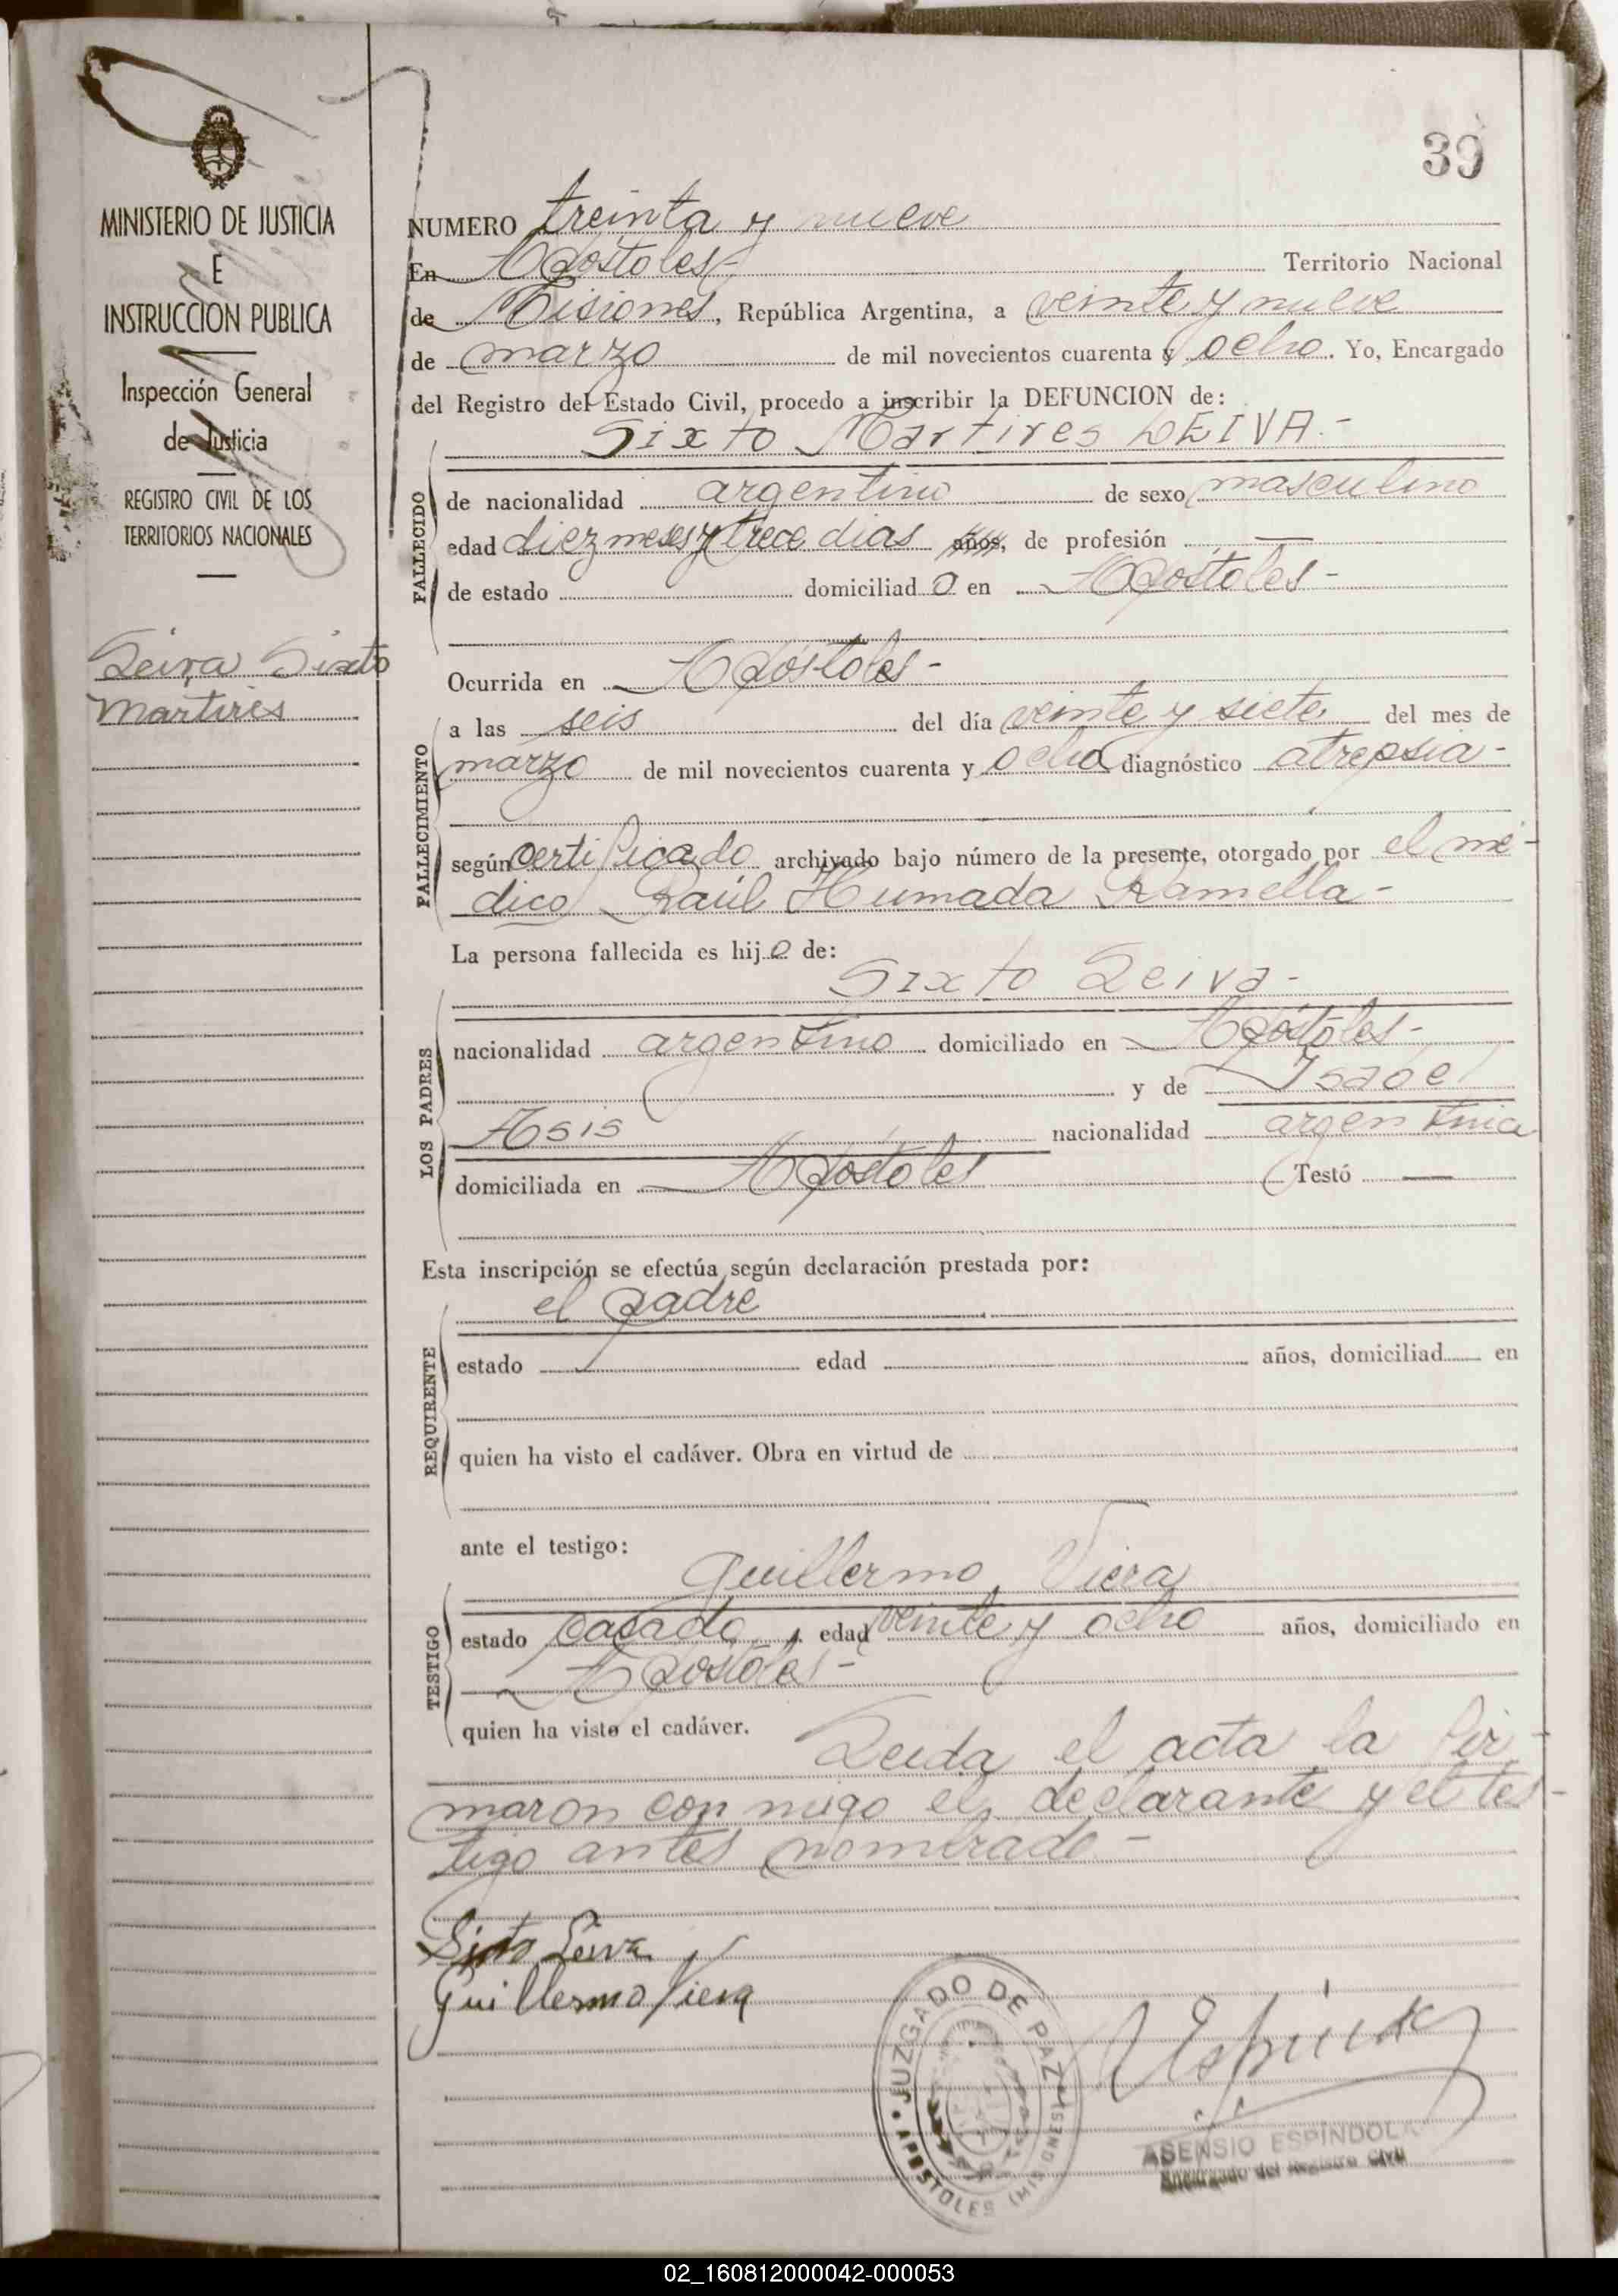 39
MINISTERIO DE JUSTICIA
E
INSTRUCCION PUBLICA
Inspección General
de Justicia
REGISTRO CIVIL DE LOS
TERRITORIOS NACIONALES
Leiva Sixto
Martires
NUMERO treinta y nueve
En Apóstoles Territorio Nacional
de Misiones, República Argentina, a veinte y nueve
de marzo de mil novecientos cuarenta y ocho. Yo, Encargado
del Registro del Estado Civil, procedo a inscribir la DEFUNCION de:
Sixto Martires LEIVA.-
FALLECIDO
de nacionalidad argentino de sexo masculino
edad diez meses y trece dias años, de profesión —
de estado domiciliado en Apóstoles-
FALLECIMIENTO
Ocurrida en Apóstoles-
a las seis del día veinte y siete del mes de
marzo de mil novecientos cuarenta y ocho diagnóstico atrepsia-
según certificado archivado bajo número de la presente, otorgado por el mé-
dico Raúl Humada Ramella-
La persona fallecida es hijo de:
LOS PADRES
Sixto Leiva-
nacionalidad argentino domiciliado en Apóstoles-
y de Isabel
Asis nacionalidad argentina
domiciliada en Apóstoles Testó —
Esta inscripción se efectúa según declaración prestada por:
REQUIRENTE
el padre
estado edad años, domiciliad en
quien ha visto el cadáver. Obra en virtud de
ante el testigo:
TESTIGO
Guillermo Viera
estado casado, edad veinte y ocho años, domiciliado en
Apóstoles-
quien ha visto el cadáver. Leida el acta la fir-
maron con migo el declarante y el tes-
tigo antes nombrado-
Sixto Leiva
Guillermo Viera
JUZGADO DE PAZ
APOSTOLES (MISIONES)
ASENSIO ESPINDOLA
Encargado del Registro Civil
02_160812000042-000053